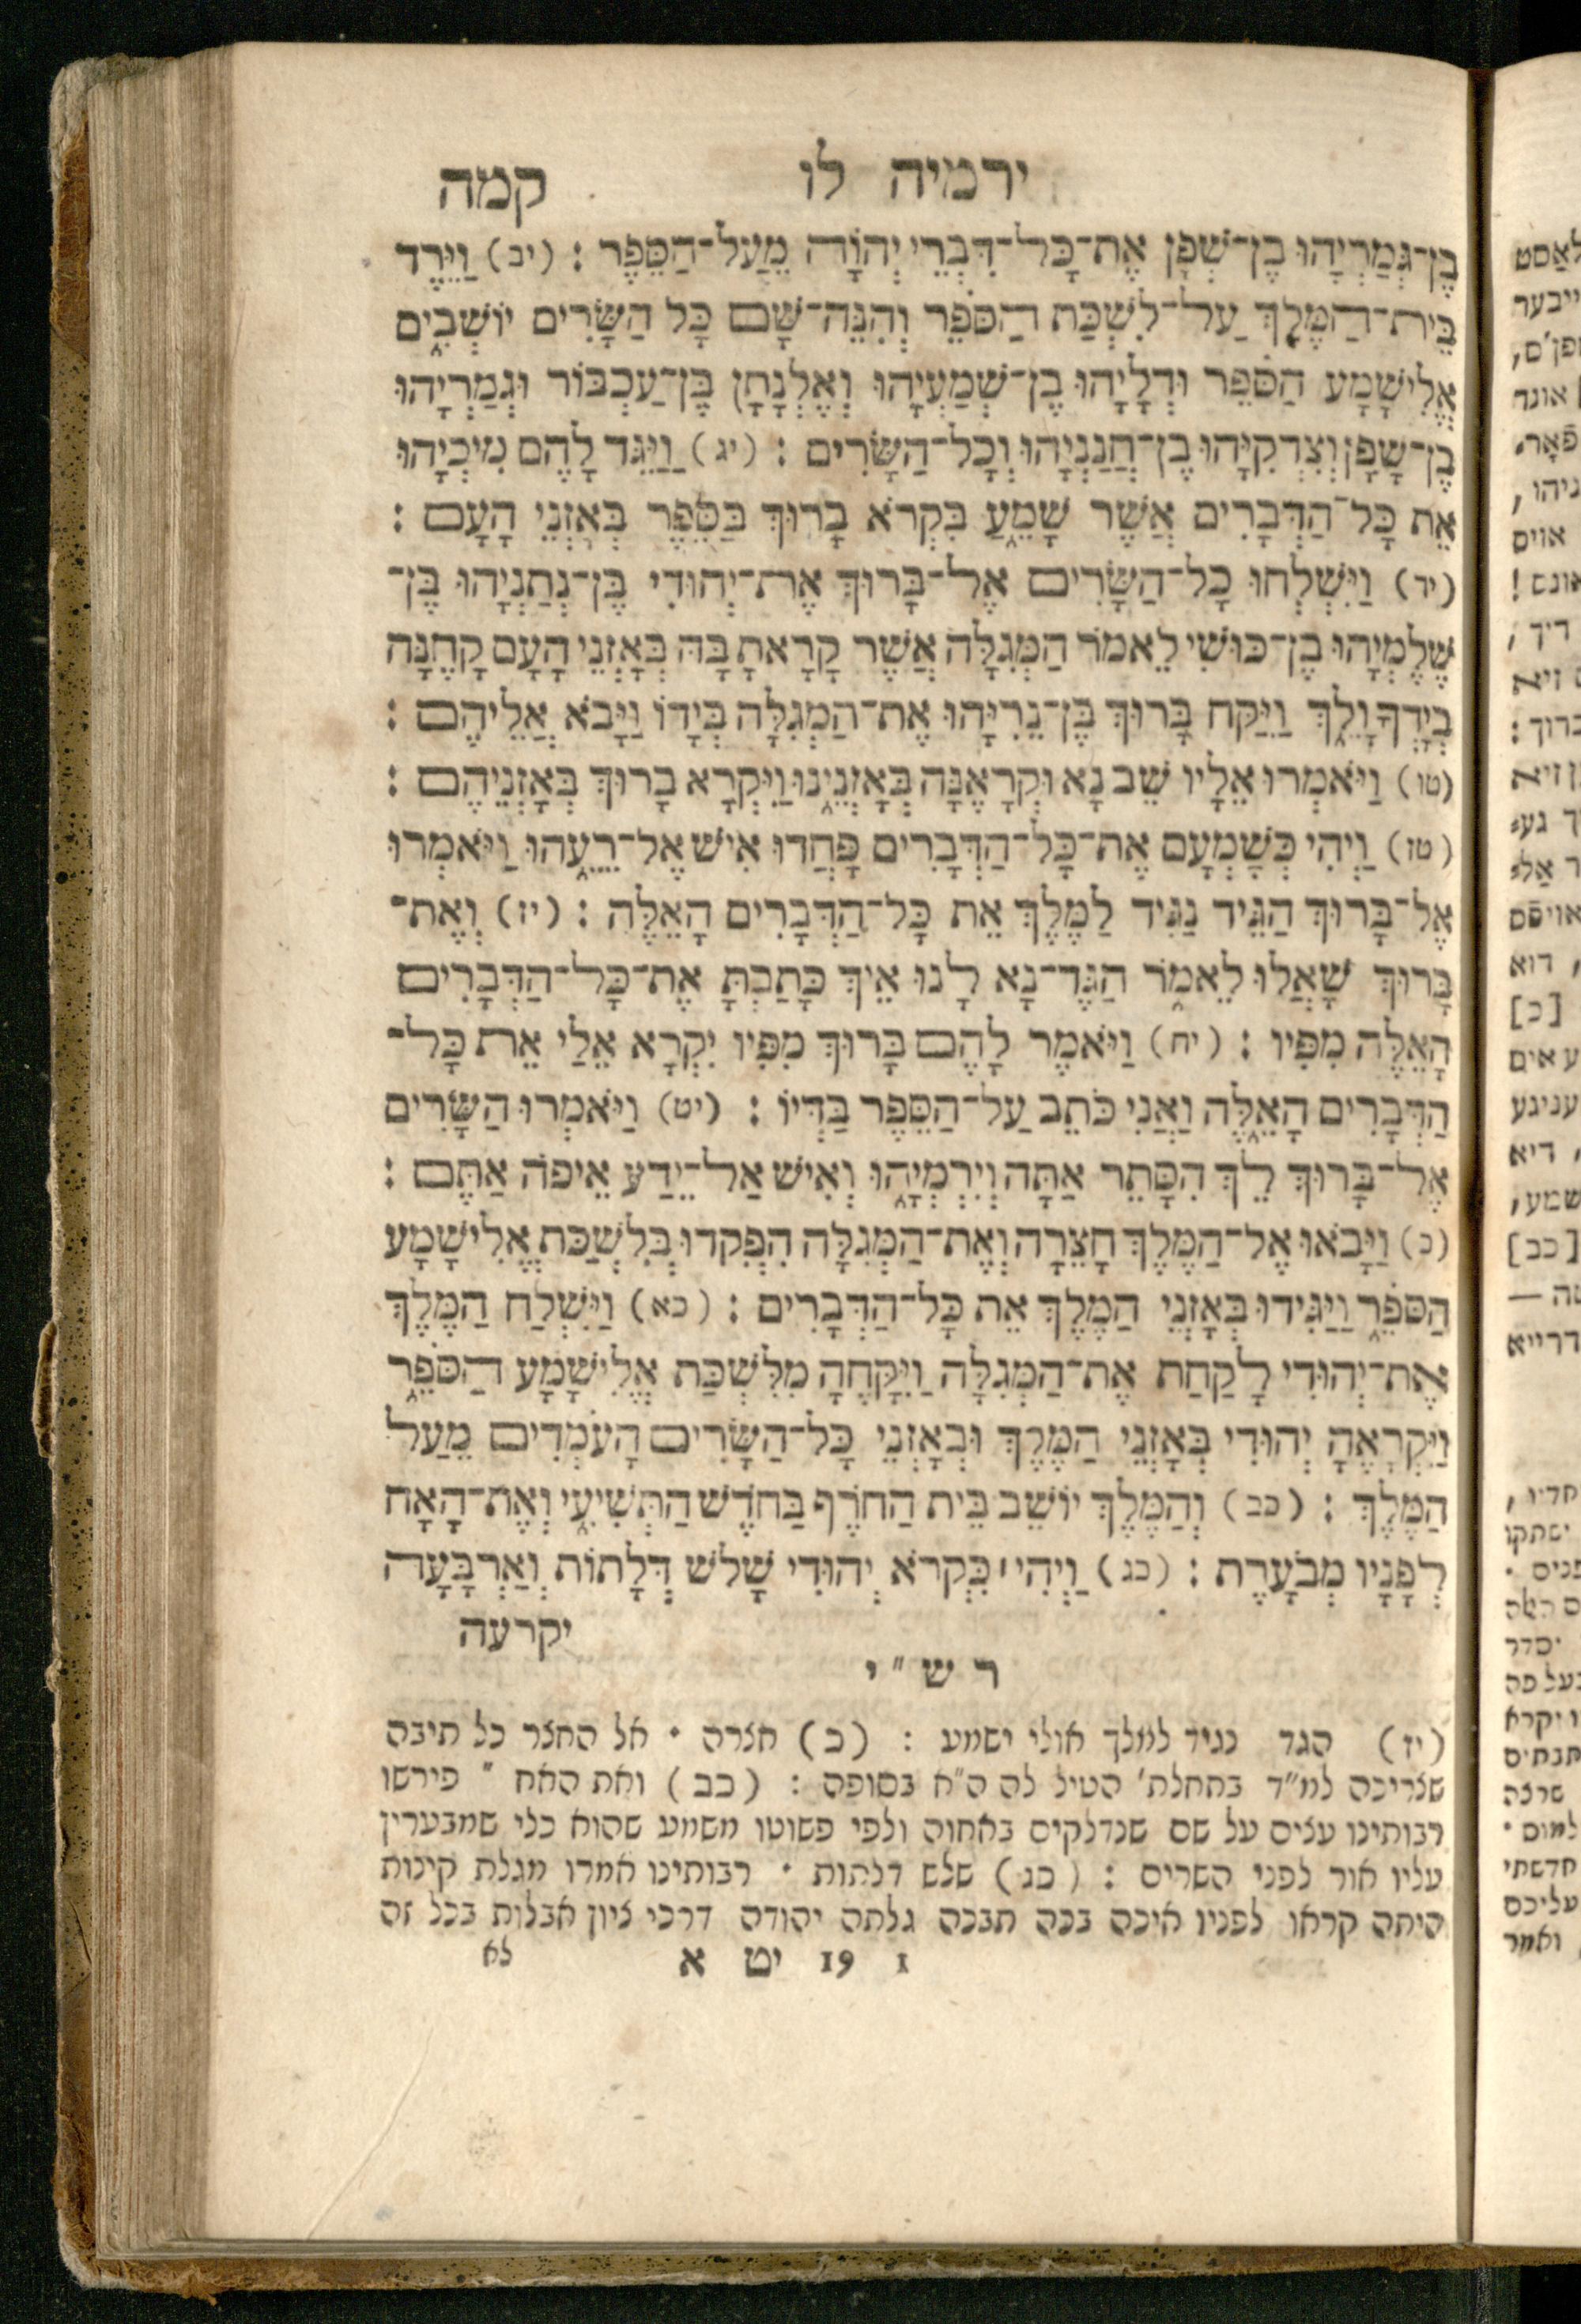 ירמיה לו קמה
בֶּן־גְּמַרְיָהוּ בֶן־שָׁפָן אֶת־כָּל־דִּבְרֵי יְהוָֹה מֵעַל־הַסֵּפֶר : (יב) וַיֵּרֶד
בֵּית־הַמֶּלֶךְ עַל־לִשְׁכַּת הַסֹּפֵר וְהִנֵּה־שָׁם כָּל הַשָּׂרִים יוֹשְׁבִים
אֱלִישָׁמָע הַסֹּפֵר וּדְלָיָהוּ בֶן־שְׁמַעְיָהוּ וְאֶלְנָתָן בֶּן־עַכְבּוֹר וּגְמַרְיָהוּ
בֶן־שָׁפָן וְצִדְקִיָּהוּ בֶן־חֲנַנְיָהוּ וְכָל־הַשָּׂרִים : (יג) וַיַּגֵּד לָהֶם מִיכְיָהוּ
אֵת כָּל־הַדְּבָרִים אֲשֶׁר שָׁמֵעַ בִּקְרֹא בָרוּךְ בַּסֵּפֶר בְּאָזְנֵי הָעָם :
(יד) וַיִּשְׁלְחוּ כָל־הַשָּׂרִים אֶל־בָּרוּךְ אֶת־יְהוּדִי בֶּן־נְתַנְיָהוּ בֶּן־
שֶׁלֶמְיָהוּ בֶן־כּוּשִׁי לֵאמֹר הַמְּגִלָּה אֲשֶׁר קָרָאתָ בָּהּ בְּאָזְנֵי הָעָם קָחֶנָּה
בְיָדְךָ וָלֵךְ וַיִּקַּח בָּרוּךְ בֶּן־נֵרִיָּהוּ אֶת־הַמְּגִלָּה בְּיָדוֹ וַיָּבֹא אֲלֵיהֶם :
(טו) וַיֹּאמְרוּ אֵלָיו שֵׁב נָא וּקְרָאֶנָּה בְּאָזְנֵינוּ וַיִּקְרָא בָרוּךְ בְּאָזְנֵיהֶם :
(טז) וַיְהִי כְּשָׁמְעָם אֶת־כָּל־הַדְּבָרִים פָּחֲדוּ אִישׁ אֶל־רֵעֵהוּ וַיֹּאמְרוּ
אֶל־בָּרוּךְ הַגֵּיד נַגִּיד לַמֶּלֶךְ אֵת כָּל־הַדְּבָרִים הָאֵלֶּה : (יז) וְאֶת־
בָּרוּךְ שָׁאֲלוּ לֵאמֹר הַגֶּד־נָא לָנוּ אֵיךְ כָּתַבְתָּ אֶת־כָּל־הַדְּבָרִים
הָאֵלֶּה מִפִּיו : (יח) וַיֹּאמֶר לָהֶם בָּרוּךְ מִפִּיו יִקְרָא אֵלַי אֵת כָּל־
הַדְּבָרִים הָאֵלֶּה וַאֲנִי כֹּתֵב עַל־הַסֵּפֶר בַּדְּיוֹ : (יט) וַיֹּאמְרוּ הַשָּׂרִים
אֶל־בָּרוּךְ לֵךְ הִסָּתֵר אַתָּה וְיִרְמְיָהוּ וְאִישׁ אַל־יֵדַע אֵיפֹה אַתֶּם :
(כ) וַיָּבֹאוּ אֶל־הַמֶּלֶךְ חָצֵרָה וְאֶת־הַמְּגִלָּה הִפְקִדוּ בְּלִשְׁכַּת אֱלִישָׁמָע
הַסֹּפֵר וַיַּגִּידוּ בְּאָזְנֵי הַמֶּלֶךְ אֵת כָּל־הַדְּבָרִים : (כא) וַיִּשְׁלַח הַמֶּלֶךְ
אֶת־יְהוּדִי לָקַחַת אֶת־הַמְּגִלָּה וַיִּקָּחֶהָ מִלִּשְׁכַּת אֱלִישָׁמָע הַסֹּפֵר
וַיִּקְרָאֶהָ יְהוּדִי בְּאָזְנֵי הַמֶּלֶךְ וּבְאָזְנֵי כָּל־הַשָּׂרִים הָעֹמְדִים מֵעַל
הַמֶּלֶךְ : (כב) וְהַמֶּלֶךְ יוֹשֵׁב בֵּית הַחֹרֶף בַּחֹדֶשׁ הַתְּשִׁיעִי וְאֶת־הָאָח
לְפָנָיו מְבֹעָרֶת : (כג) וַיְהִי׀ כִּקְרֹא יְהוּדִי שָׁלֹשׁ דְּלָתוֹת וְאַרְבָּעָה
יקרעה
רש"י
(יז) הגד נגיד למלך אולי ישמע : (כ) חצרה • אל החצר כל תיבה
שצריכה למ"ד בתחלת' הטיל לה ה"א בסופה : (כב) ואת האח " פירשו
רבותינו עצים על שם שנדלקים באחוה ולפי פשוטו משמע שהוא כלי שמבערין
עליו אור לפני השרים : (כג) שלש דלתות • רבותינו אמרו מגלת קינות
היתה קראו לפניו איכה בכה תבכה גלתה יהודה דרכי ציון אבלות בכל זה
1 19 יט א לא